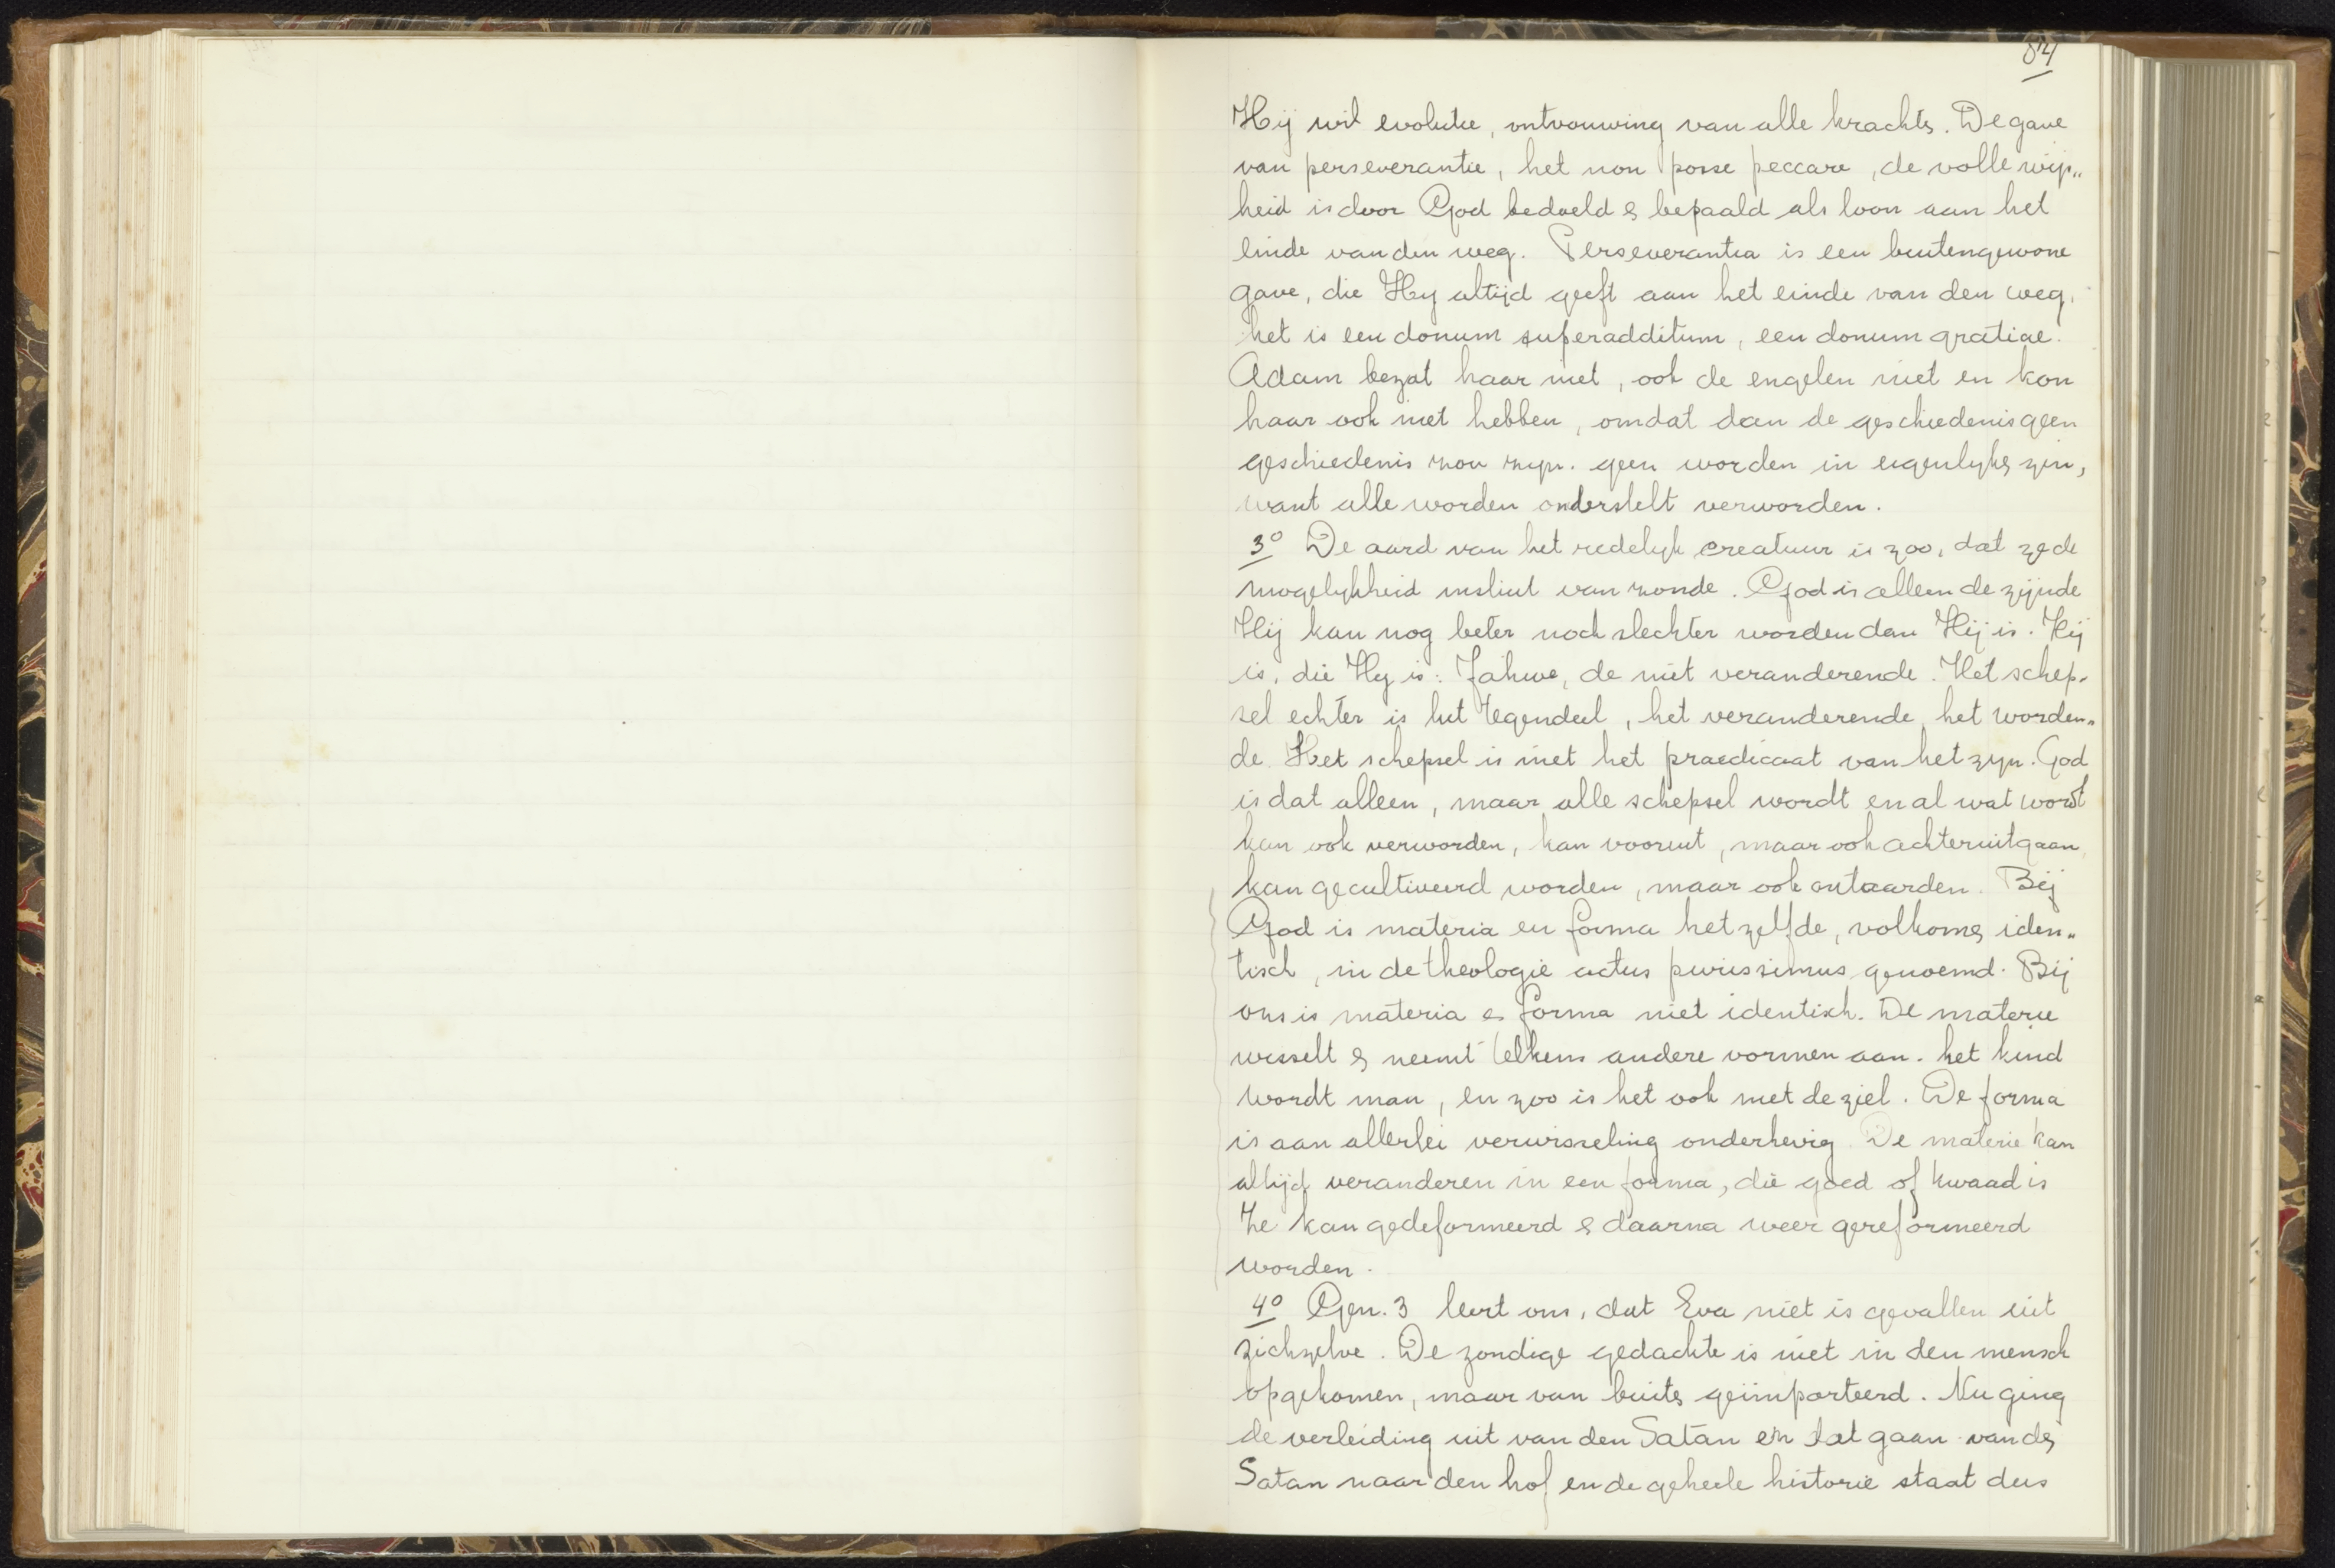 84
Hij wil evolutie, ontvouwing van alle krachtn. De gave
van perseverantie, het non posse peccare, de volle vrij„
heid is door God bedoeld & bepaald als loon aan het
einde van den weg. Perseverantia is een buitengewone
gave, die Hy altijd geeft aan het einde van den weg,
het is een donum superadditum, een donum gratiae.
Adam bezat haar niet, ook de engelen niet en kon
haar ook niet hebben, omdat dan de geschiedenis geen
geschiedenis zou zyn. geen worden in eigenlyke zin,
want alle worden onderstelt verworden.
3° De aard van het redelyk creatuur is zoo, dat ze de
mogelykheid insluit van zonde. God is alleen de zijnde
Hij kan nog beter noch slechter worden dan Hij is. Hij
is, die Hy is: Jahwe, de niet veranderende. Het schep-
sel echter is het tegendeel, het veranderende, het worden„
de. Het schepsel is niet het praedicaat van het zyn. God
is dat alleen, maar alle schepsel wordt en al wat wordt
kan ook verworden, kan vooruit, maar ook achteruitgaan,
kan gecultiveerd worden, maar ook ontaarden. Bij
God is materia en forma hetzelfde, volkomn iden„
tisch, in de theologie actus purissimus genoemd. Bij
ons is materia & forma niet identisch. De materie
wisselt & neemt telkens andere vormen aan. het kind
wordt man, en zoo is het ook met de ziel. De forma
is aan allerlei verwisseling onderhevig. De materie kan
altijd veranderen in een forma, die goed of kwaad is
Ze kan gedeformeerd & daarna weer gereformeerd
worden.
4° Gen. 3 leert ons, dat Eva niet is gevallen uit
zichzelve. De zondige gedachte is niet in den mensch
opgekomen, maar van buitn geïmporteerd. Nu ging
de verleiding uit van den Satan en dat gaan van dn
Satan naar den hof en de geheele historie staat dus